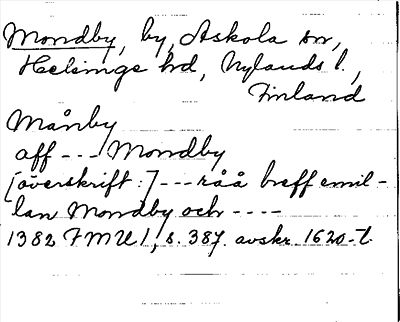 Mondby, by, Askola sn,
Helsinge hd, Nylands l.,
Finland
Månby
aff --- Mondby
[överskrift:] --- råå breff emil-
lan Mondby och ----
1382 FMU 1, s. 387. avskr. 1620-t.